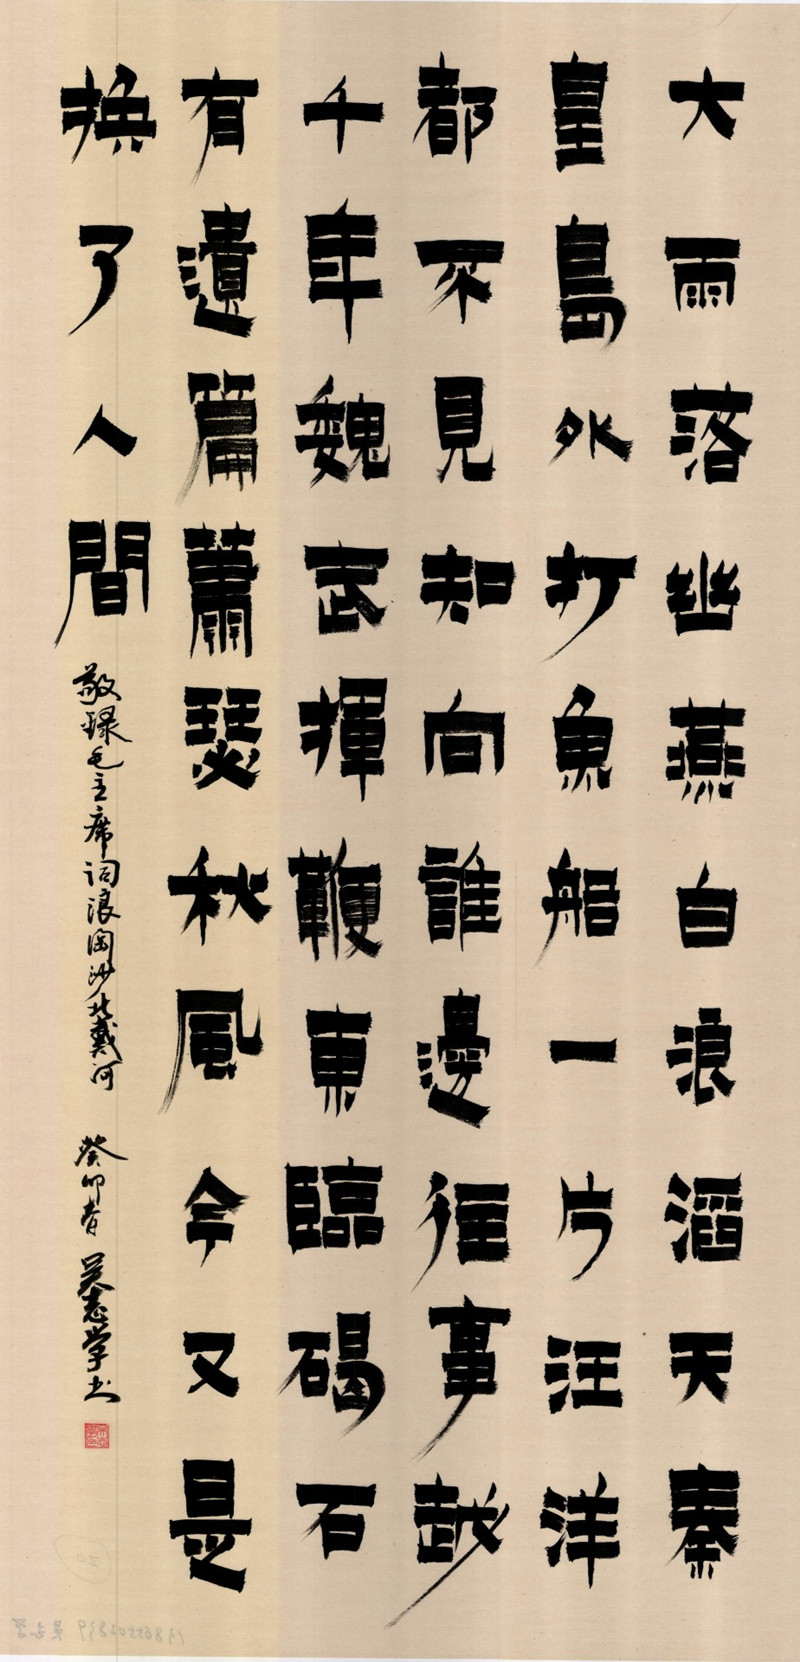 大雨落幽燕白浪滔天秦
皇島外打魚船一片汪洋
都不見知向誰邊往事越
千年魏武揮鞭東臨碣石
有遺篇蕭瑟秋風今又是
換了人間
敬録毛主席词浪淘沙北戴河 癸卯春 吴志学书